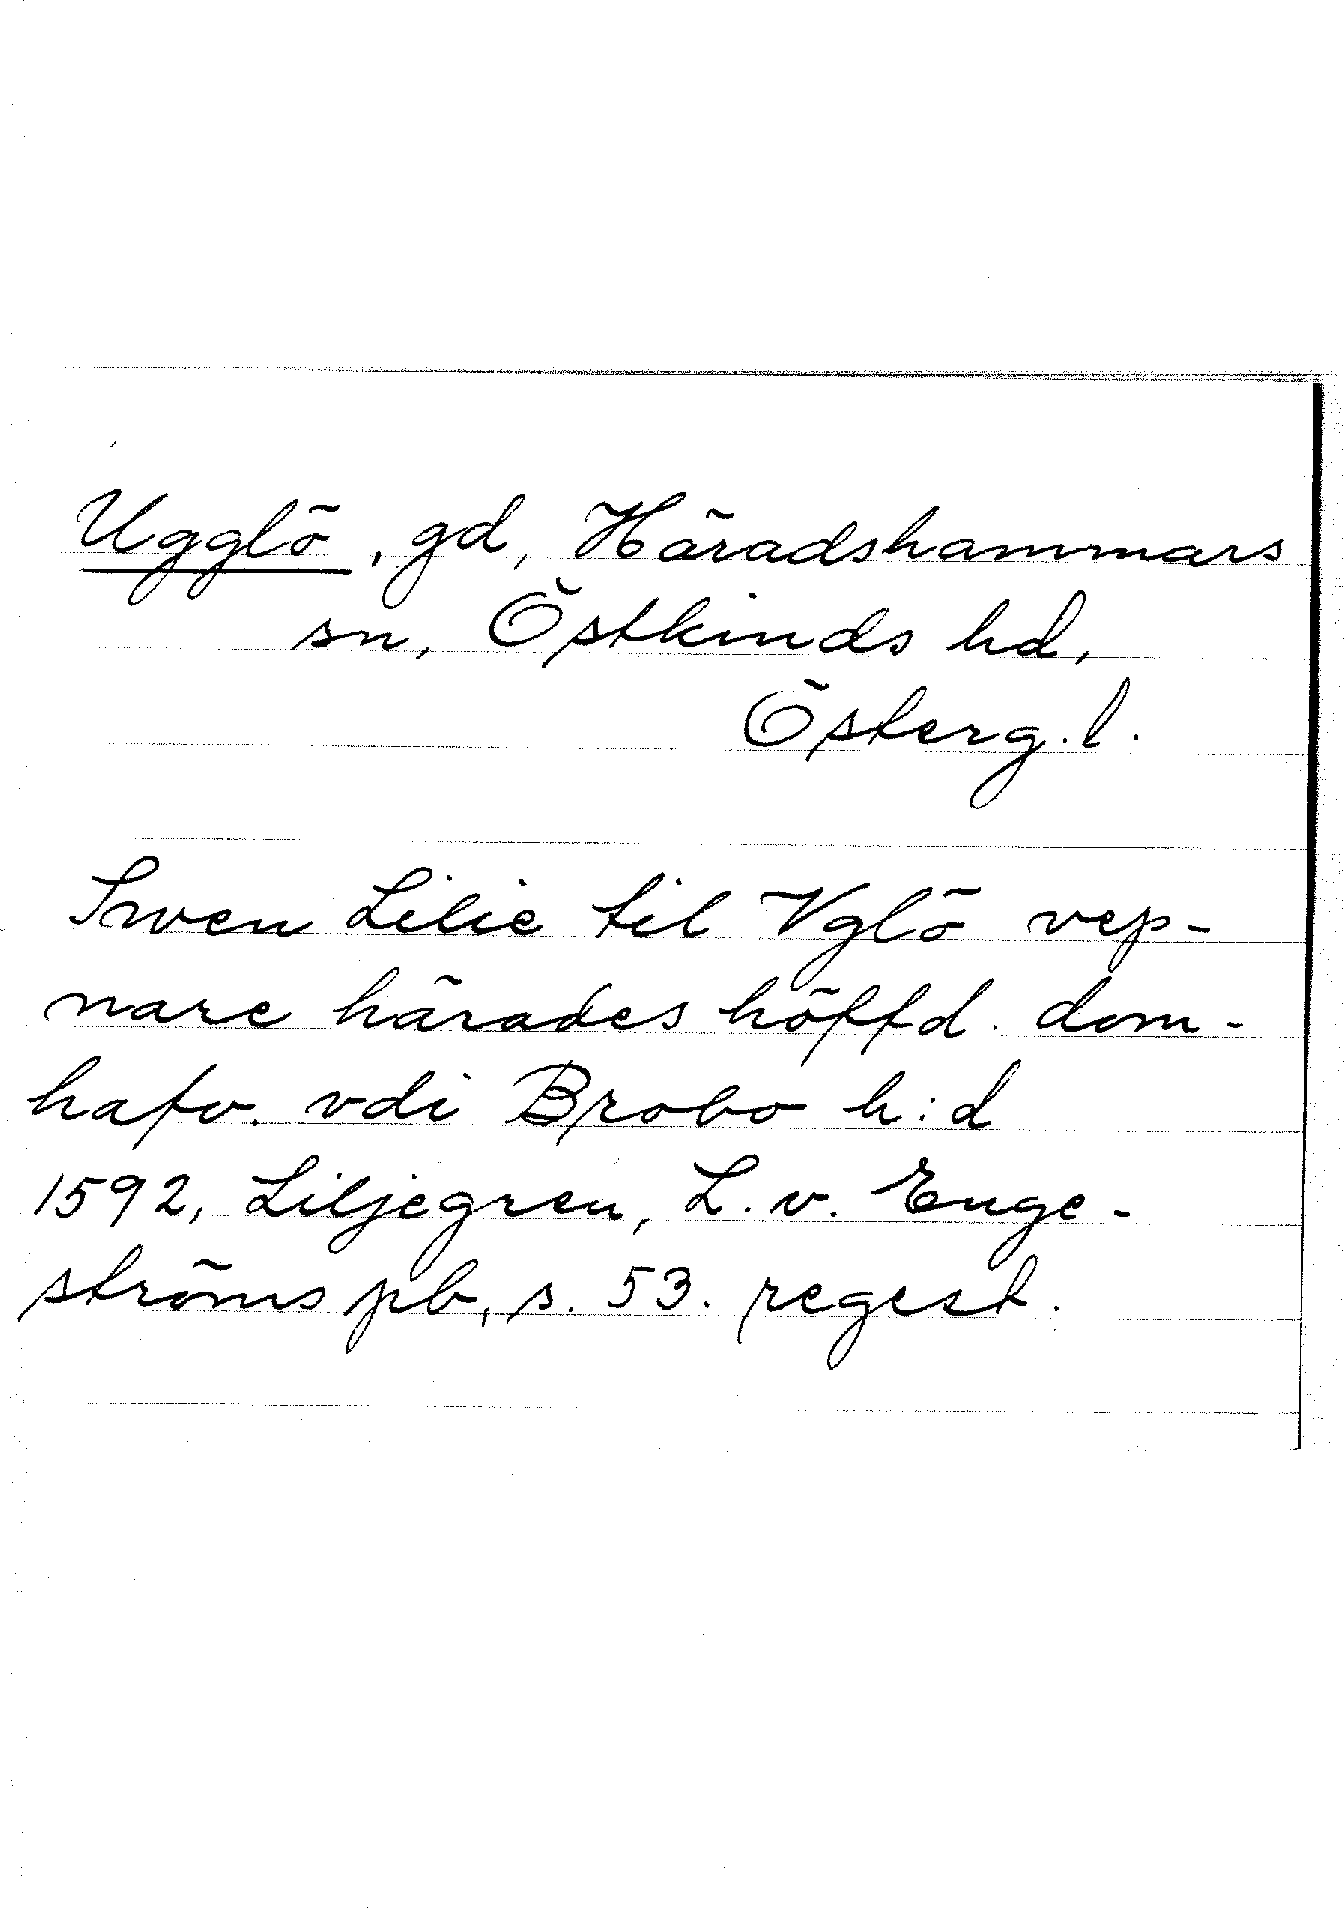 Ugglö, gd, Häradshammars
sn, Östkinds hd,
Österg. l.
Swen Lilie til Vglö vep-
nare härades höffd. dom-
hafv. vdi Brobo h:d
1592, Liljegren, L. v. Enge-
ströms pb, s. 53. regest.